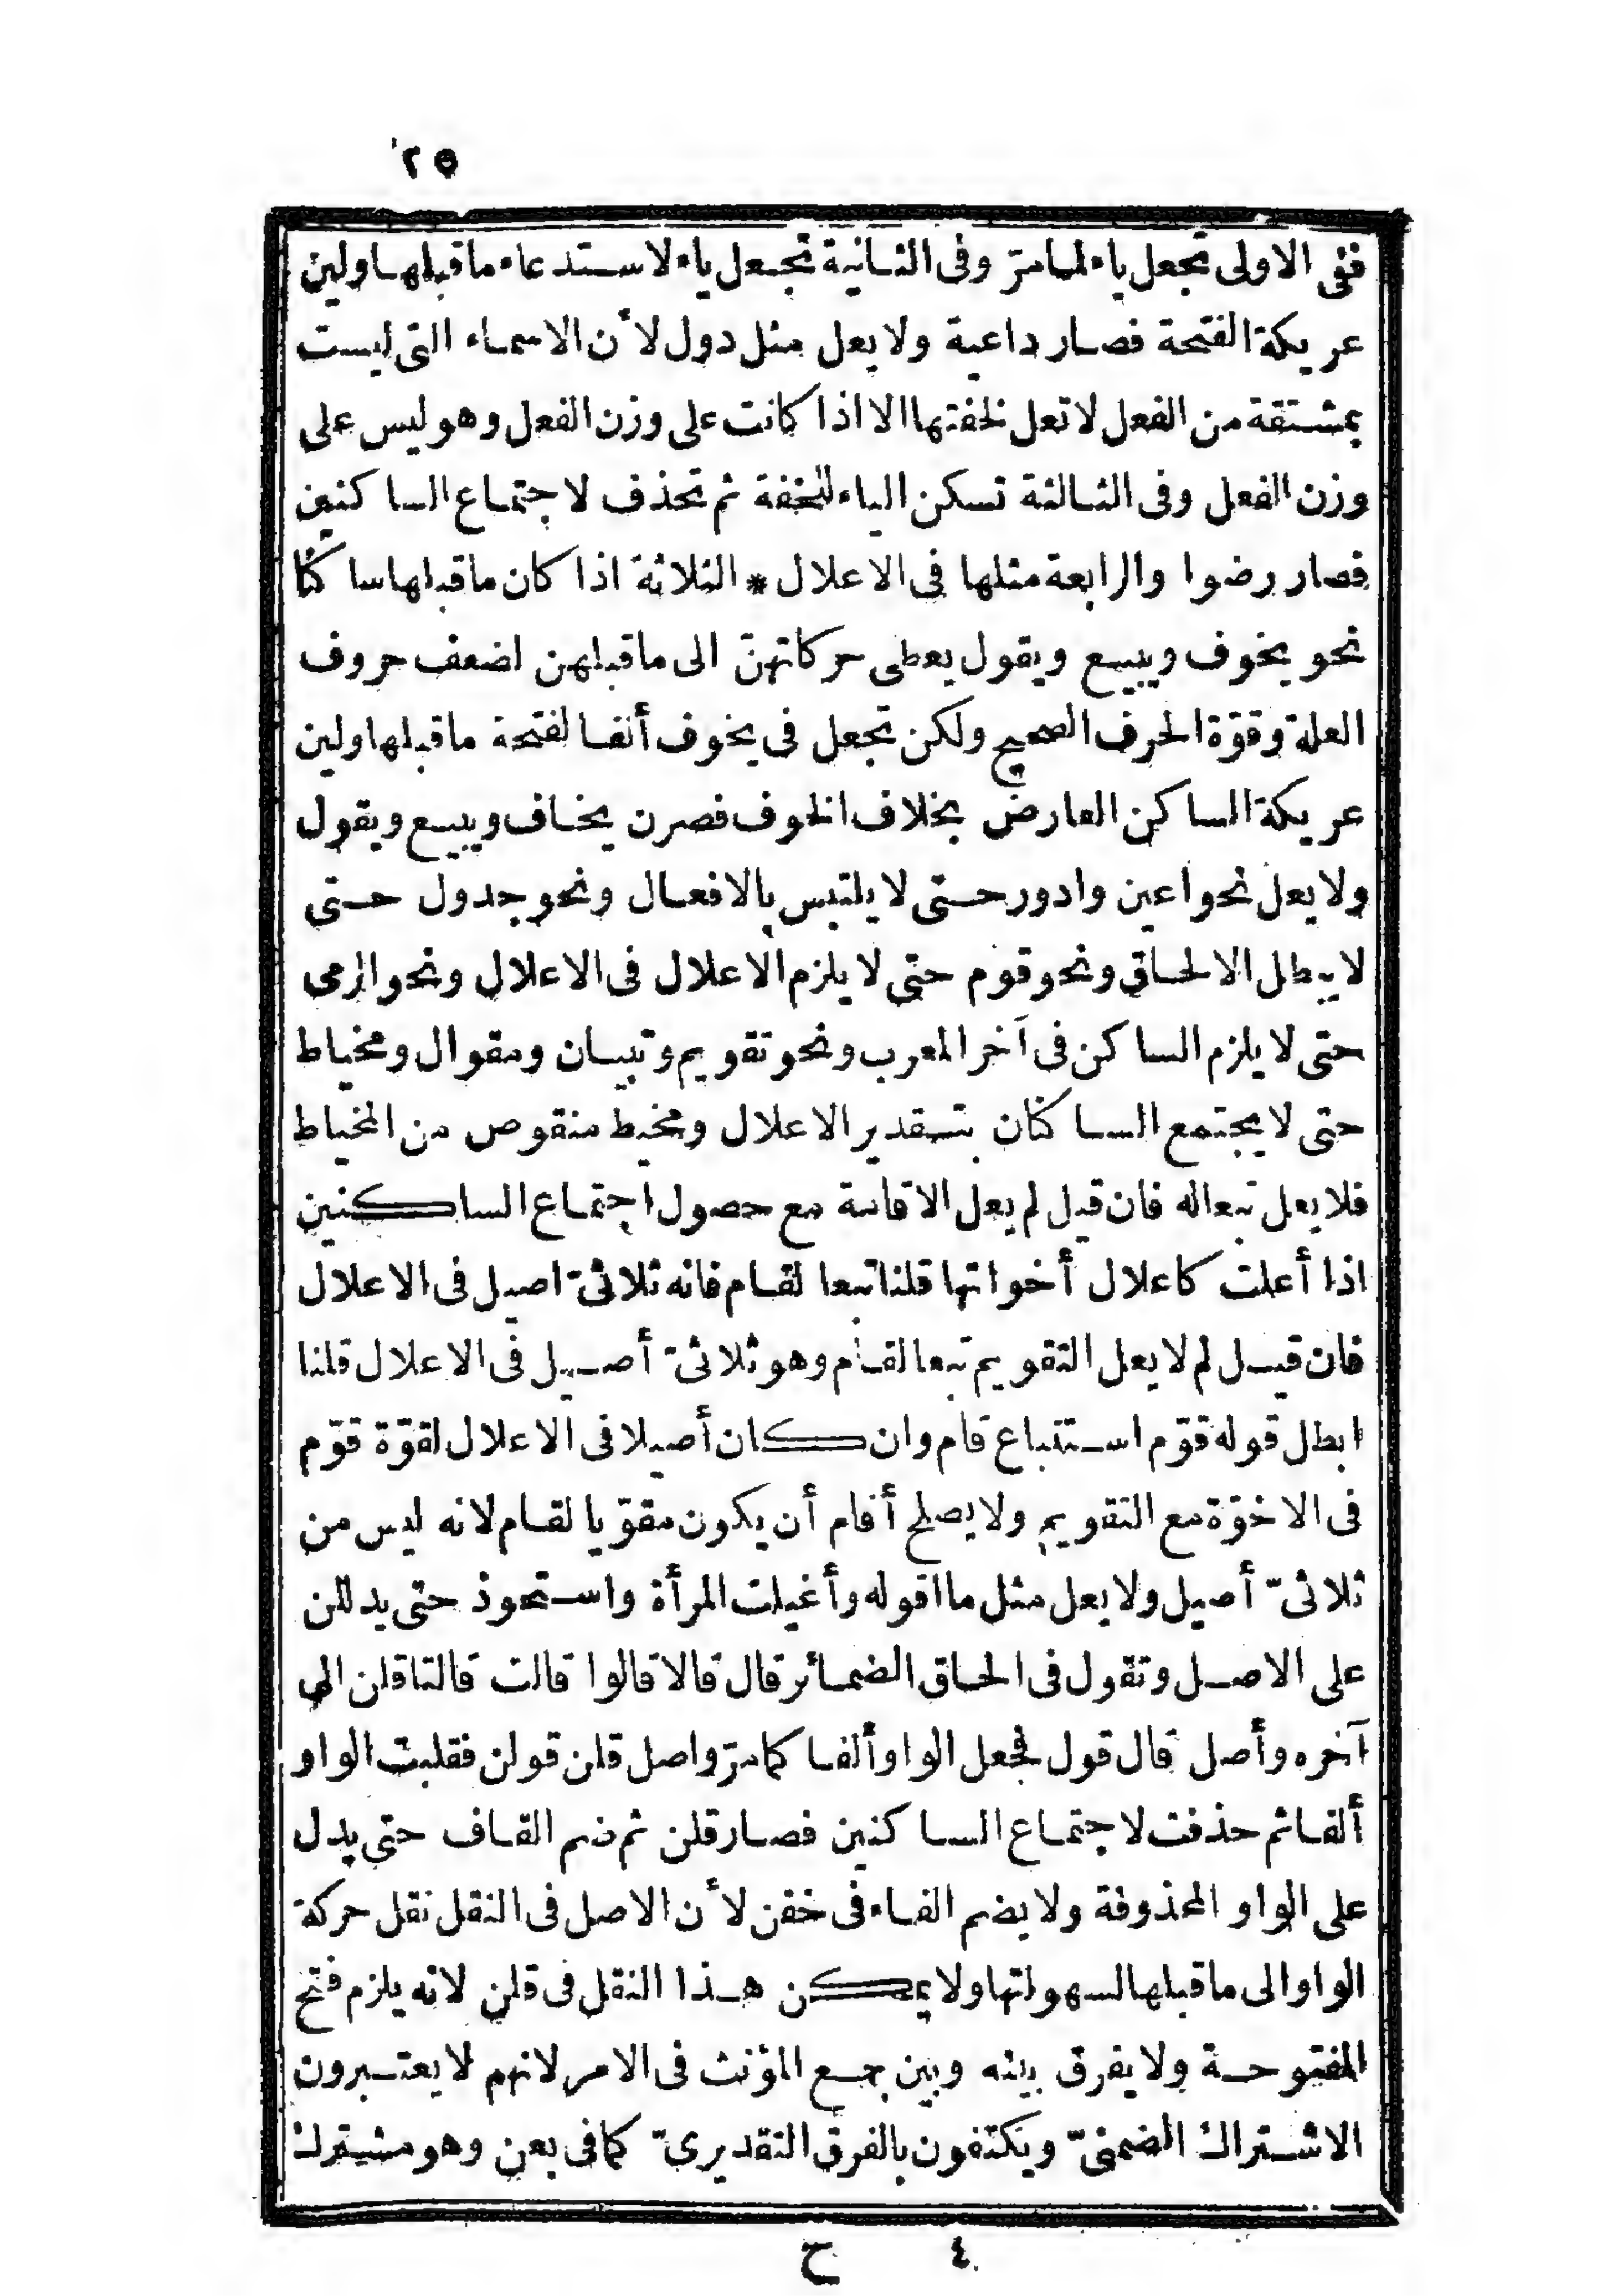 ٢٥
ففى الاولى تجعل ياء لمامرّ وفى الثانية تجعل ياء لاستدعاء ماقبلها ولين
عريكة الفتحة فصار داعية ولايعل مثل دول لأن الاسماء التى ليست
بمشتقة من الفعل لاتعل لخفتها الا اذا كانت على وزن الفعل وهوليس على
وزن الفعل وفى الثالثة تسكن الياء للخفة ثم تحذف لاجتماع الساكنين
فصار رضوا والرابعة مثلها فى الاعلال * الثلاثة اذا كان ماقبلها ساكنا
نحو يخوف ويبيع ويقول يعطى حركاتهنّ الى ماقبلهن لضعف حروف
العلة وقوّة الحرف الصحيح ولكن تجعل فى يخوف ألفا لفتحة ماقبلها ولين
عريكة الساكن العارض بخلاف الخوف فصرن يخاف ويبيع ويقول
ولايعل نحو اعين وادور حتى لايلتبس بالافعال ونحو جدول حتى
لايبطل الالحاق ونحو قوم حتى لايلزم الاعلال فى الاعلال ونحو الرمى
حتى لايلزم الساكن فى آخر المعرب ونحو تقويم وتبيان ومقوال ومخياط
حتى لايجتمع الساكنان بتقدير الاعلال ومخيط منقوص من المخياط
فلايعل تبعاله فان قيل لم يعل الاقامة مع حصول اجتماع الساكنين
اذا أعلت كاعلال أخواتها قلنا تبعا لقام فانه ثلاثىّ اصيل فى الاعلال
فان قيل لم لايعل التقويم تبعا لقام وهو ثلاثىّ أصيل فى الاعلال قلنا
ابطل قوله قوّم استتباع قام وان كان أصيلا فى الاعلال لقوّة قوّم
فى الاخوّة مع التقويم ولايصلح أقام أن يكون مقوّيا لقام لانه ليس من
ثلاثىّ أصيل ولايعل مثل ما اقوله وأغيلت المرأة واستحوذ حتى يدللن
على الاصل وتقول فى الحاق الضمائر قال قالا قالوا قالت قالتا قلن الى
آخره وأصل قال قول فجعل الواو ألفا كمامرّ واصل قلن قولن فقلبت الواو
ألفا ثم حذفت لاجتماع الساكنين فصار قلن ثم ضم القاف حتى يدل
على الواو المحذوفة ولايضم الفاء فى خفن لأن الاصل فى النقل نقل حركة
الواو الى ماقبلها لسهولتها ولايمكن هذا النقل فى قلن لانه يلزم فتح
المفتوحة ولايفرق بينه وبين جمع المؤنث فى الامر لانهم لايعتبرون
الاشتراك الضمنىّ ويكتفون بالفرق التقديرىّ كمافى بعن وهو مشترك
٤ ح